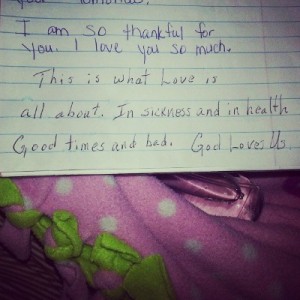 I am so thankful for
you. I love you so much.
This is what Love is
all about. In sickness and in health
Good times and bad. God Loves Us.